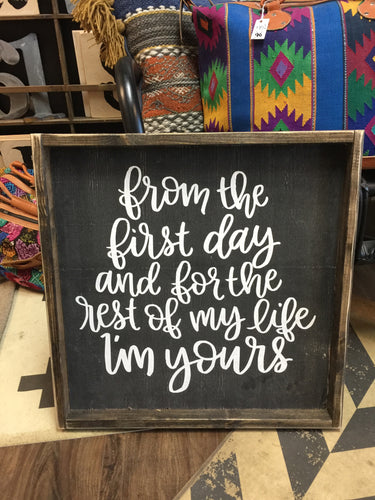 from the
first day
and for the
rest of my life
I'm yours